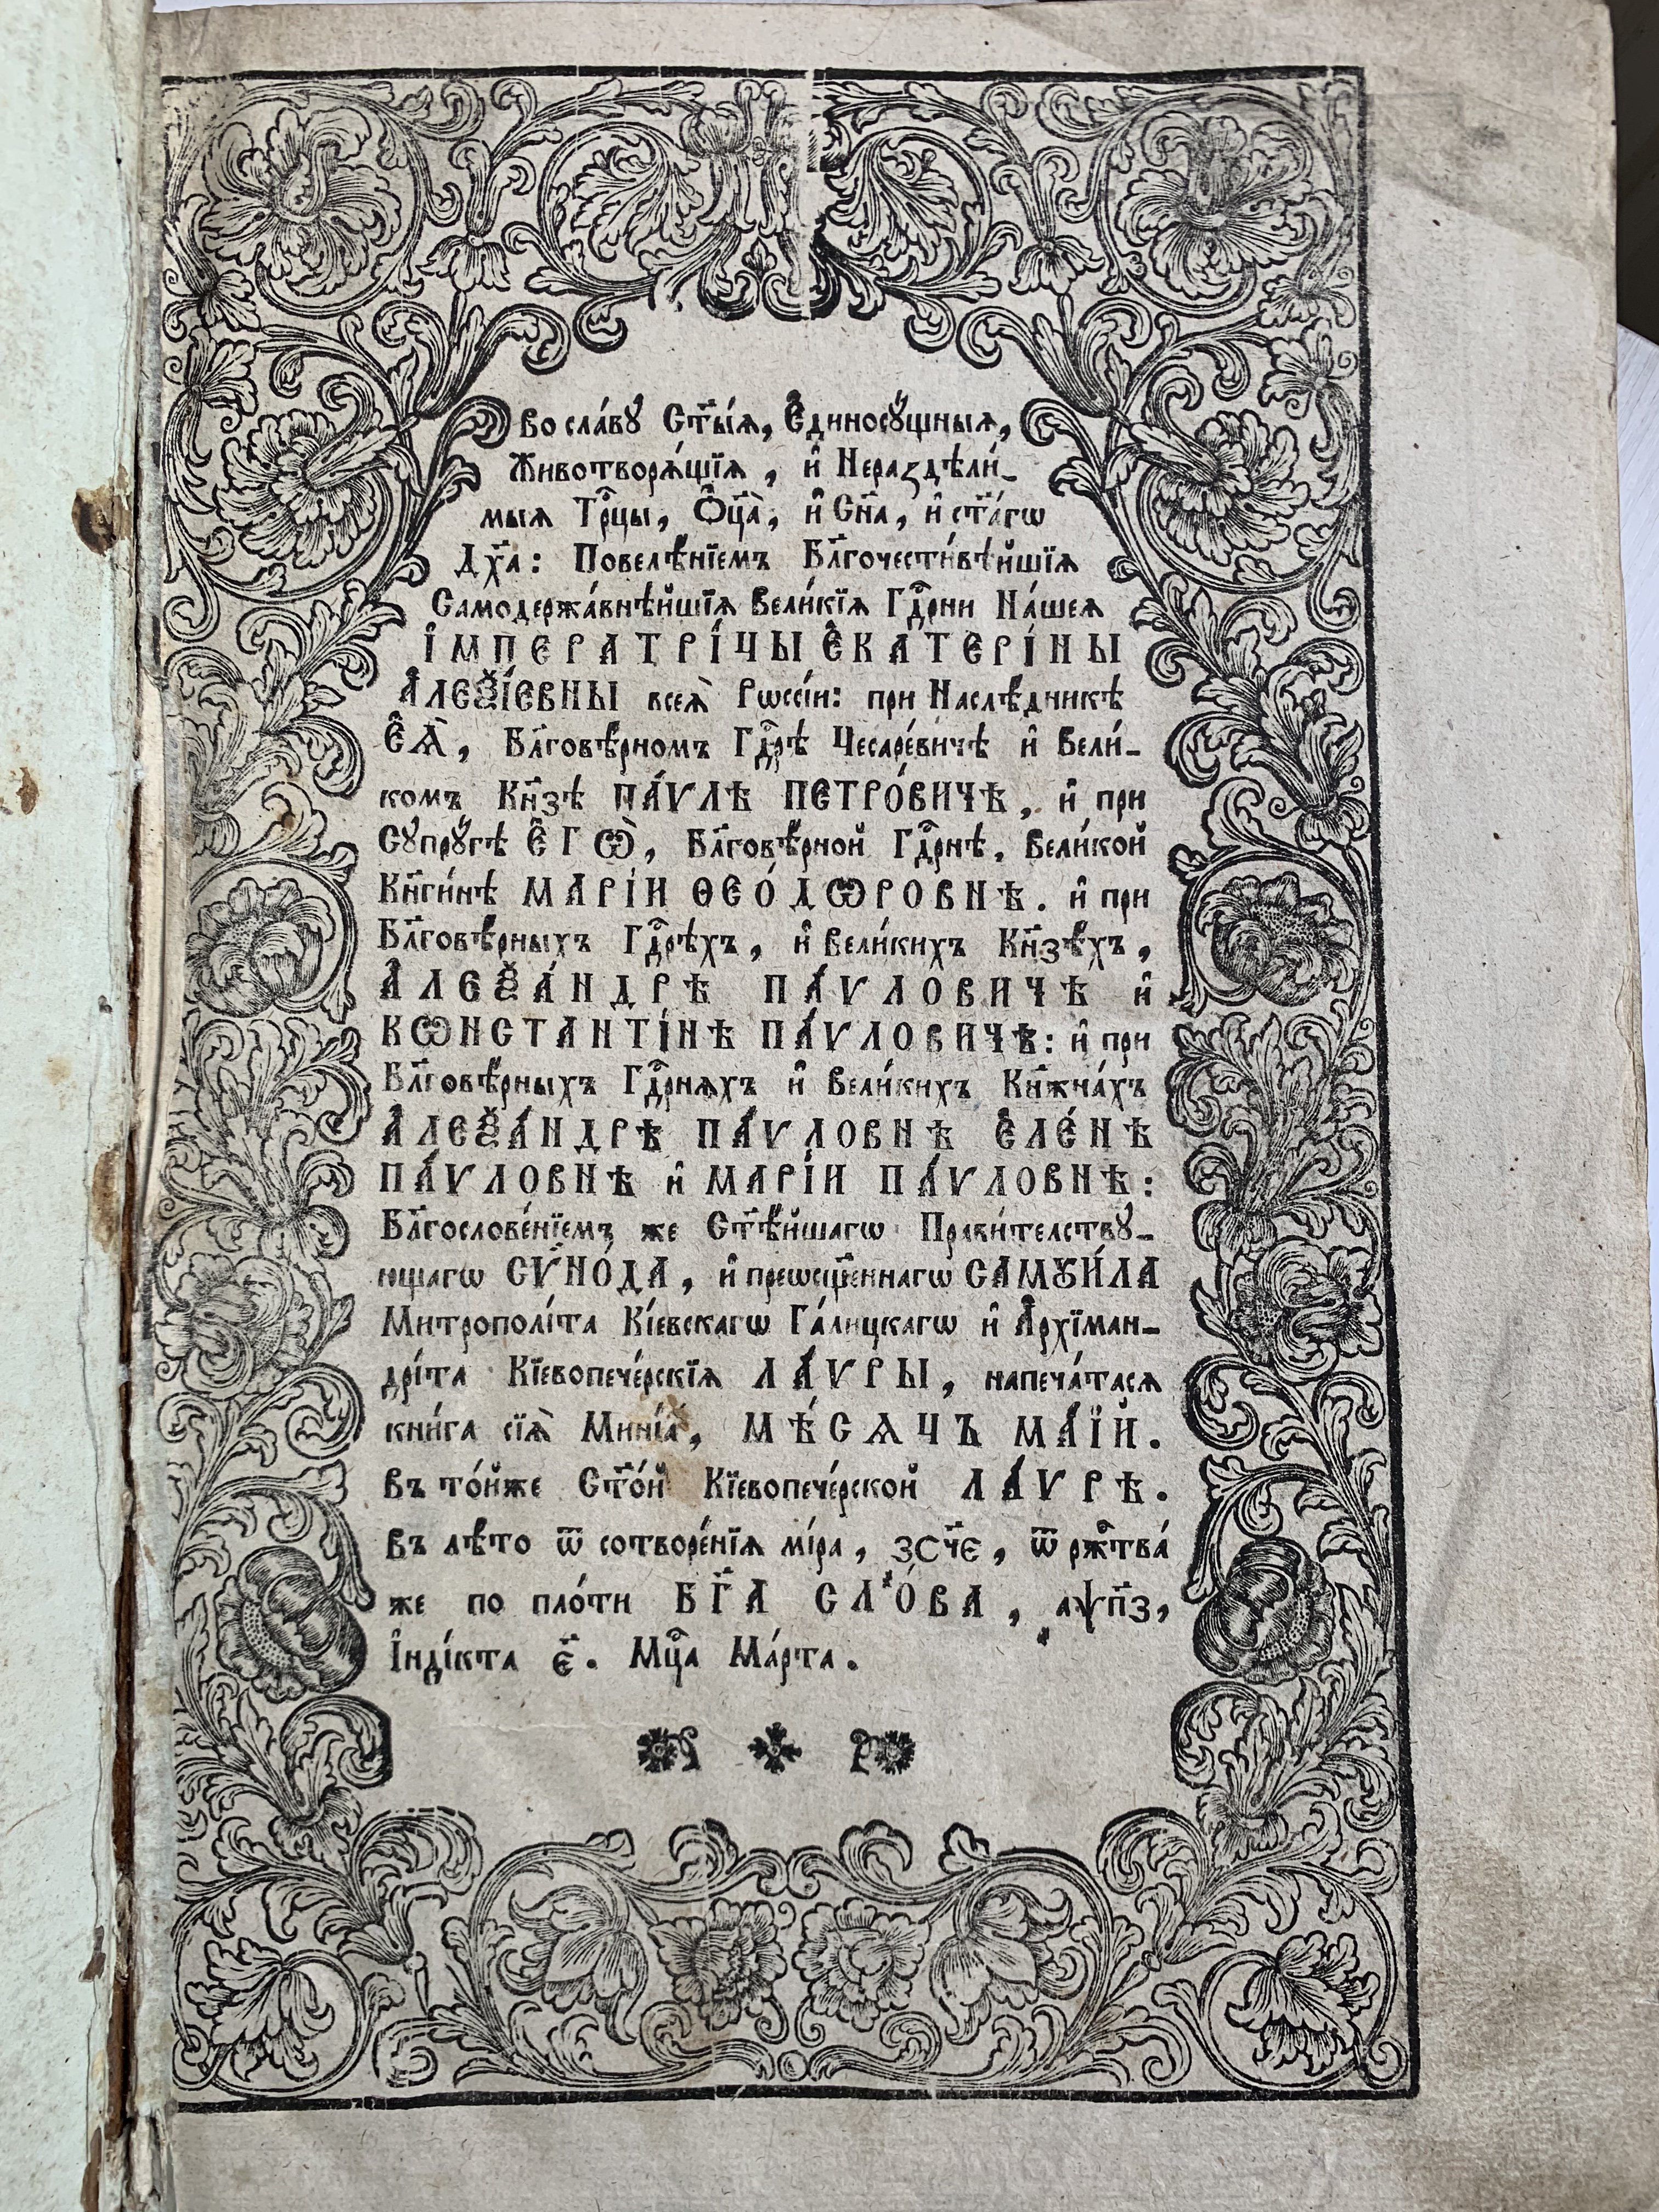 Во сла́вꙋ Ст҃ы́ѧ, Є҆диносꙋ́щныѧ,
Животворѧ́щїѧ, и҆ Нераздѣли́-
мыѧ Трⷪ҇цы, Ѻ҆ц҃а̀, и҆ Сн҃а, и҆ ст҃а́гѡ
Дх҃а: Повелѣ́нїемъ Бл҃гочести́вѣйшїѧ
Самодержа́внѣйшїѧ Вели́кїѧ Гдⷭ҇рни На́шеѧ
І҆МПЕРАТРІ́ЦЫ Є҆КАТЕРІ́НЫ
А҆ЛЕѮІ́ЕВНЫ всеѧ̀ Рѡссі́и: при Наслѣ́дникѣ
Є҆Ѧ̀, Бл҃говѣ́рномъ Гдⷭ҇рѣ Цесаре́вичѣ и҆ Вели́-
комъ Кн҃зѣ ПА́ѴЛѢ ПЕТРО́ВИЧѢ, и҆ при
Сꙋпрꙋ́гѣ Є҆ГѠ̀, Бл҃говѣ́рной Гдⷭ҇рнѣ, Вели́кой
Кн҃ги́нѣ МАРІ́И ѲЕО́ДѠРОВНѢ. и҆ при
Бл҃говѣ́рныхъ Гдⷭ҇рѣхъ, и҆ Вели́кихъ Кн҃зѣ́хъ,
А҆ЛЕѮА́НДРѢ ПА́ѴЛОВИЧѢ и҆
КѠНСТАНТІ́НѢ ПА́ѴЛОВИЧѢ: и҆ при
Бл҃говѣ́рныхъ Гдⷭ҇рнѧхъ и҆ Вели́кихъ Кн҃жна́хъ
А҆ЛЕѮА́НДРѢ ПА́ѴЛОВНѢ Є҆ЛЕ́НѢ
ПА́ѴЛОВНѢ и҆ МАРІ́И ПА́ѴЛОВНѢ:
Бл҃гослове́нїемъ же Ст҃ѣ́йшагѡ Прави́телствꙋ-
ющагѡ СѴНО́ДА, и҆ преѡсщ҃е́ннагѡ САМꙊИ́ЛА
Митрополі́та Кі́евскагѡ Га́лицкагѡ и҆ А҆рхїман-
дрі́та Кїевопече́рскїѧ ЛА́ѴРЫ, напеча́тасѧ
кни́га сїѧ̀ Миніа́, МѢ́СѦЦЪ МА́ЇЙ.
въ то́йже Ст҃о́й Кїевопече́рской ЛА́ѴРѢ.
въ лѣ́то ѿ сотворе́нїѧ мі́ра, ꙁсч҃є, ѿ ржⷭ҇тва́
же по пло́ти БГ҃А СЛО́ВА, аѱп҃з,
І҆нді́кта є҃. Мцⷭ҇а Ма́рта.